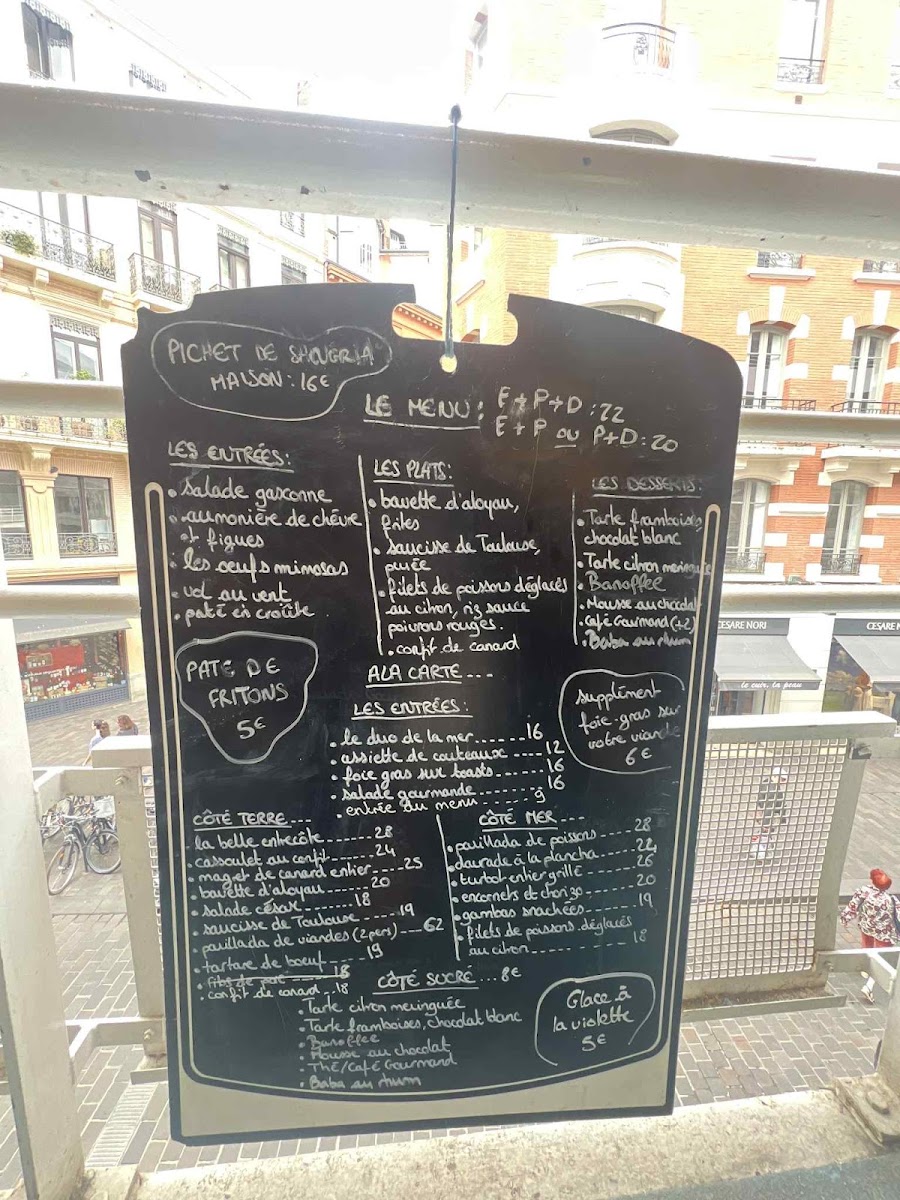 PICHET DE SANGRIA
MAISON : 16€
LE MENU : E+P+D : 22
E+P OU P+D : 20
LES ENTRÉES :
• salade gasconne
• aumonière de chèvre
et figues
• les oeufs mimosas
• vol au vent
• paté en croûte
LES PLATS :
• bavette d'aloyau,
frites
• saucisse de Toulouse,
purée
• filets de poissons déglacés
au citron, riz sauce
poivrons rouges.
• confit de canard
LES DESSERTS :
• Tarte framboises
chocolat blanc
• Tarte citron meringuée
• Banoffee
• Mousse au chocolat
• Café Gourmand (+2)
• Baba au rhum
PATE DE
FRITONS
5€
A LA CARTE...
LES ENTRÉES :
• le duo de la mer.......16
• assiette de couteaux.....12
• foie gras sur toasts......16
• salade gourmande........16
• entrée du menu........9
Supplément
foie-gras sur
votre viande
6€
CÔTÉ TERRE...
• la belle entrecôte.....28
• cassoulet au confit.....24
• magret de canard entier....25
• bavette d'aloyau......20
• salade césar......18
• saucisse de Toulouse.....19
• parillada de viandes (2pers)...62
• tartare de boeuf......19
18
• confit de canard..18
CÔTÉ MER...
• parillada de poissons.....28
• daurade à la plancha.....22
• turbot entier grillé......26
• encornets et chorizo......20
• gambas snackées......19
• filets de poissons déglacés
au citron........18
CÔTÉ SUCRÉ...8€
• Tarte citron meringuée
• Tarte framboises, chocolat blanc
• Banoffee
• Mousse au chocolat
• Thé/Café Gourmand
• Baba au rhum
Glace à
la violette
5€
CESARE NORI
le cuir, la peau
CESARE NORI